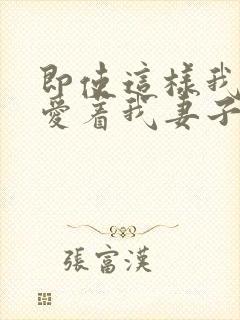 即使這樣我
愛着我妻子
張富漢